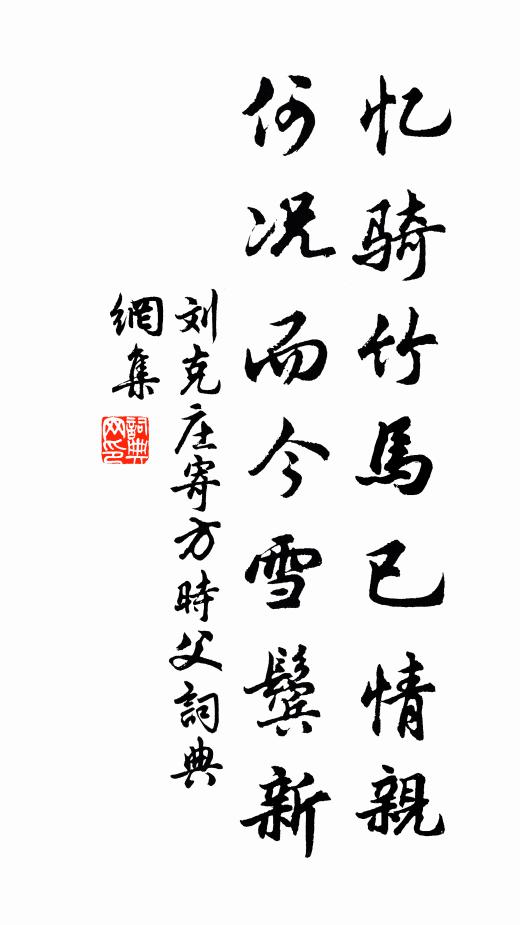 忆骑竹馬已情親
何况而今雪鬓新
刘克庄寄方時父詞典
網集
詞典
网印